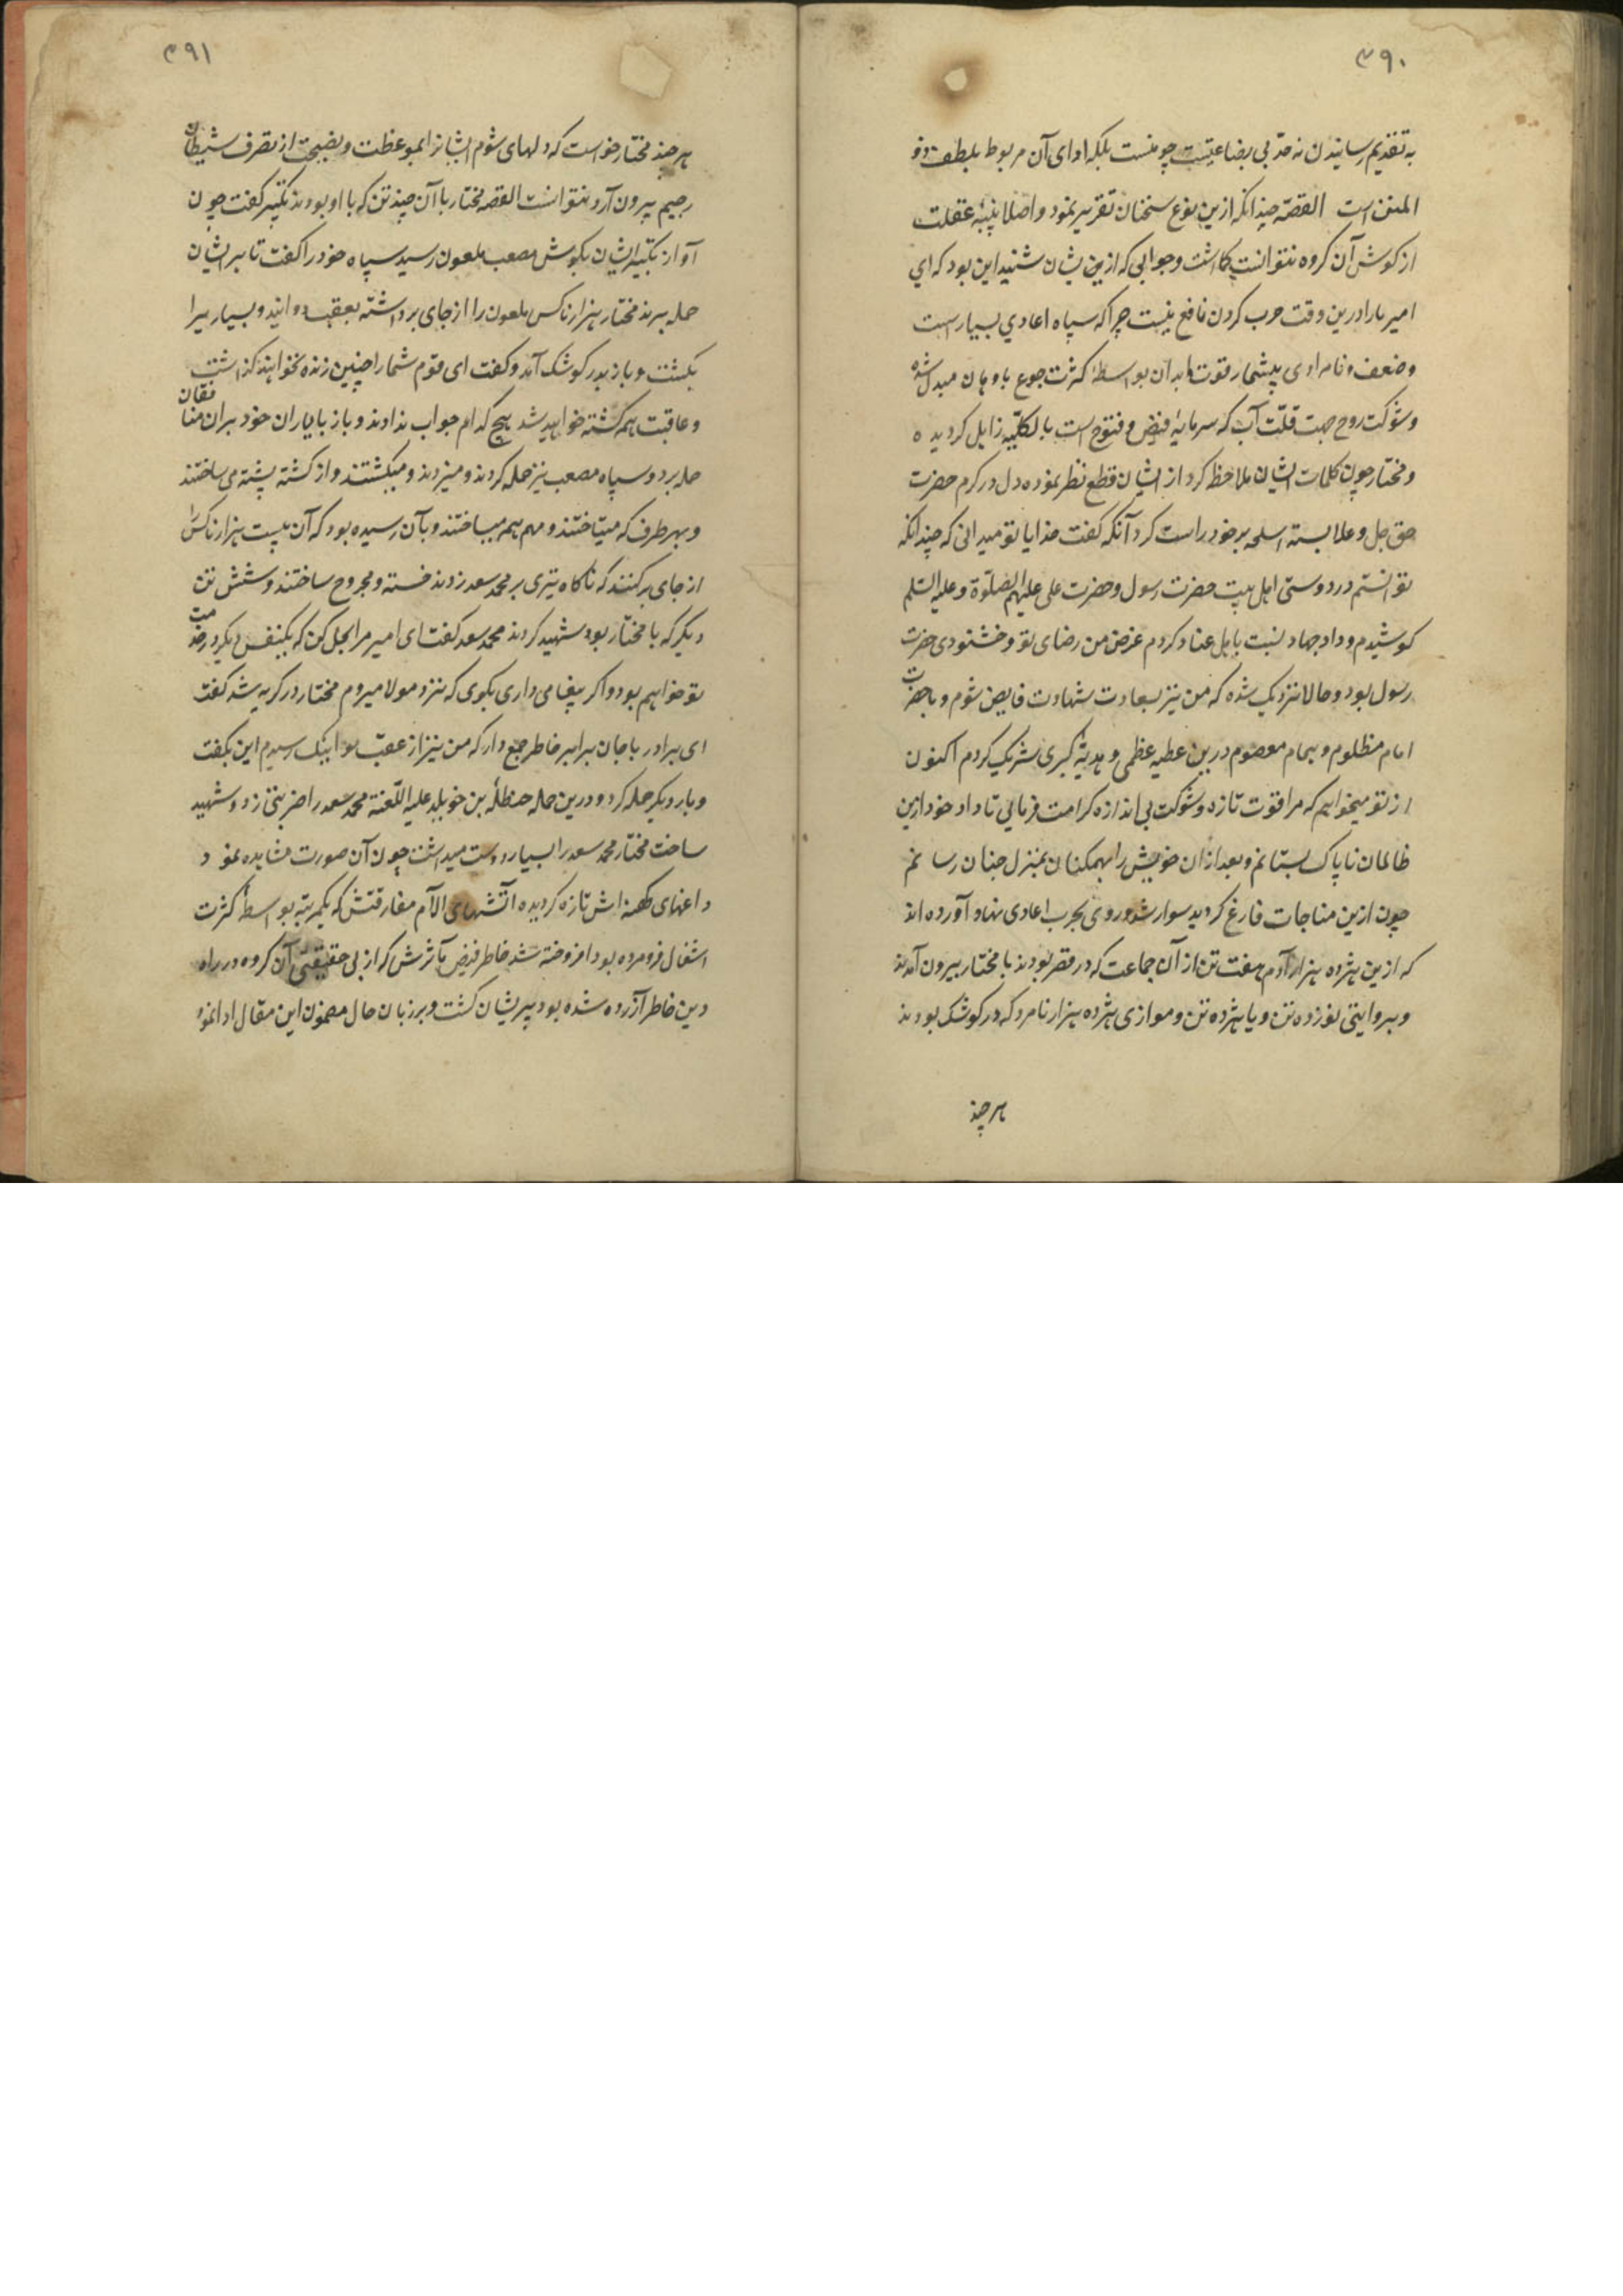 ۳۹۰
به تقدیم رسانیدن نه حد بی بضاعتیست چو منست بلکه ادای آن مربوط بلطف ذو
المنن است القصه چندانکه ازین نوع سخنان تقریر نمود و اصلا پنبه غفلت
از کوش آن کروه نتوانست کاشت و جوابی که ازین یشان شنید این بود که ای
امیر ما را درین وقت حرب کردن نافع نیست چرا که سپاه اعادی بسیار است
و ضعف و نامرادی بیشمار قوت ابدان بواسطه کثرت جوع باوهان مبدل شده
و شوکت روح جهت قلت آب که سرمایه فیض و فتوح است بالکلیه زایل کردیده
و مختار چون کلمات ایشان ملاحظه کرد از ایشان قطع نظر نموده دل در کرم حضرت
حق جل و علا بسته اسلحه بر خود راست کرد آنکه کفت خدایا تو میدانی که چندانکه
توانستم در دوستی اهل بیت حضرت رسول و حضرت علی علیهم الصلوة و علیه السلم
کوشیدم و داد جهاد نسبت باهل عناد کردم غرض من رضای تو و خشنودی حضرت
رسول بود و حالا نزدیک شده که من نیز بسعادت شهادت فایض شوم و با حضرت
امام مظلوم و بهمام معصوم درین عطیه عظمی و هدیه کبری شریک کردم اکنون
از تو میخواهم که مرا قوت تازه و شوکت بی اندازه کرامت فرمائی تا داد خود ازین
ظالمان ناپاک بستانم و بعد از آن خویش را بهمکنان بمنزل جنان رسانم
چون ازین مناجات فارغ کردید سوار شد و روی بحرب اعادی نهاد آورده اند
که ازین هژده هزار آدم هفت تن از آن جماعت که در قصر بودند با مختار بیرون آمدند
و بروایتی نوزده تن و یا هژده تن و موازی هژده هزار نامرد که در کوشک بودند
هر چند
۳۹۱
هر چند مختار خواست که دلهای شوم ایشانرا بموعظت و نصیحت از تصرف شیطان
رجیم بیرون آرد نتوانست القصه مختار با آن چند تن که با او بودند تکبیر کفت چون
آواز تکبیر ایشان بکوش مصعب ملعون رسید سپاه خود را کفت تا بر ایشان
حمله برند مختار هزار ناکس ملعون را از جای برداشته بعقب دوانید و بسیار یرا
بکشت و باز بدر کوشک آمد و کفت ای قوم شما را چنین زنده نخواهند کذاشت
و عاقبت همه کشته خواهید شد هیچ کدام جواب ندادند و باز با یاران خود بر آن منافقان
حمله برد و سپاه مصعب نیز حمله کردند و میزدند و میکشتند و از کشته پشته می ساختند
و بهر طرف که میتاختند و مهم همه میساختند و بآن رسیده بود که آن بیست هزار ناکس را
از جای برکنند که ناکاه تیری بر محمد سعد زدند خسته و مجروح ساختند و شش تن
دیکر که با مختار بود شهید کردند محمد سعد کفت ای امیر مرا بحل کن که یکنفس دیکر در خدمت
تو خواهم بود و اکر پیغامی داری بکوی که نزد مولا میروم مختار در کریه شد کفت
ای برادر با جان برابر خاطر جمع دار که من نیز از عقب تو اینک رسیدم این بکفت
و بار دیکر حمله کرد و درین حمله حنظله بن خویلد علیه اللعنة محمد سعد را ضربتی زد و شهید
ساخت مختار محمد سعد را بسیار دوست میداشت چون آن صورت مشاهده نمود
داغهای کهنه اش تازه کردیده آتشهای آلام مفارقتش که یکمرتبه بواسطه کثرت
اشغال فرو مرده بود افروخته شد خاطر فیض مآثرش که از بی حقیقتی آن کروه در راه
دین خاطر آزرده شده بود پریشان کشت و بر زبان حال مضمون این مقال ادا نمود